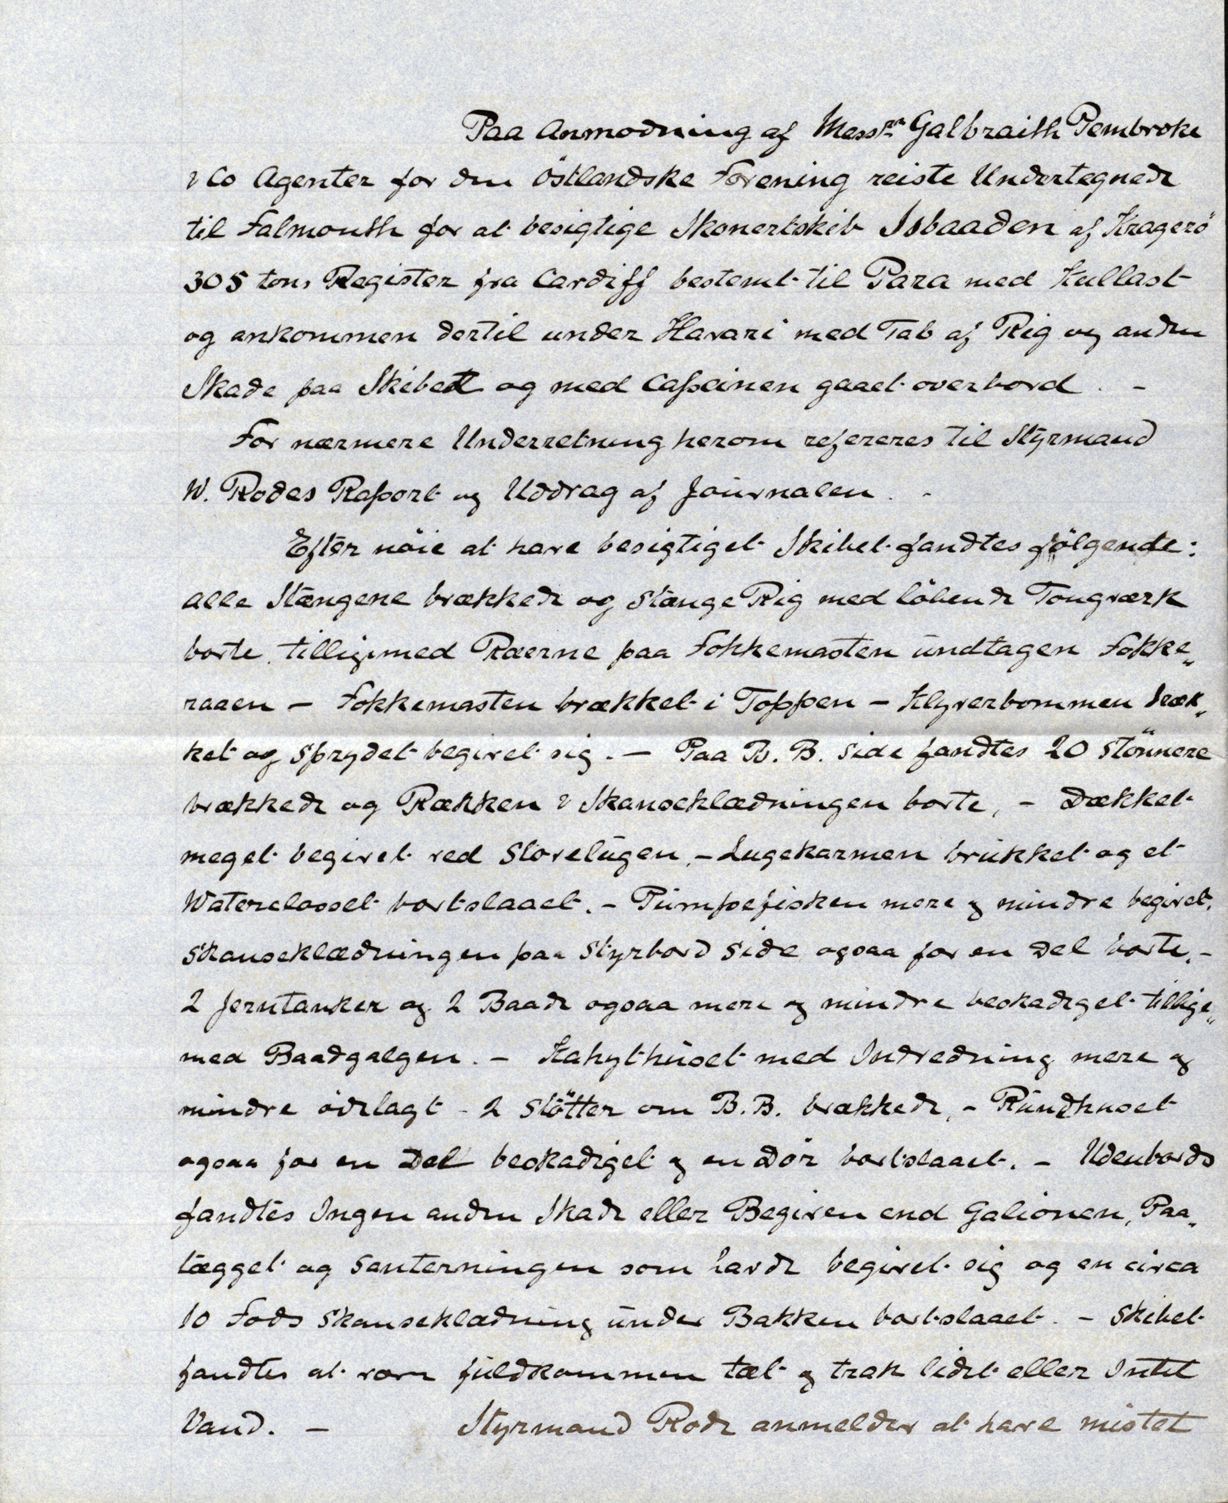 Paa Anmodning af Messrs Galbraith Pembroke
& Co Agenter for den Östlandske Forening reiste Undertegnede
til Falmouth for at besigtige Skonertskib Isbaaden af Kragerö
305 tons Register fra Cardiff bestemt til Para med Kullast
og ankommen dertil under Havari med Tab af Rig og anden
Skade paa Skibet og med Capteinen gaaet overbord. -
For nærmere Underretning herom refereres til Styrmand
W. Rodes Raport og Uddrag af Journalen. -
Efter nöie at have besigtiget Skibet fandtes fölgende:
alle Stængene brækkede og Stænge Rig med löbende Tougværk
borte, tilligemed Raerne paa Fokkemasten undtagen Fokke-
raaen - Fokkemasten brækket i Toppen - Klyverbommen bræk-
ket og Sprydet begivet sig. - Paa B. B. Side fandtes 20 Stönnere
brækkede og Rækken & Skanseklædningen borte, - Dækket
meget begivet ved Storelugen, - Lugekarmen brukket og et
Waterclosset bortslaaet. - Pumpefisken mere og mindre begivet,
Skanseklædningen paa Styrbord Side ogsaa for en Del borte. -
2 Jerntanker og 2 Baade ogsaa mere og mindre beskadiget tillige-
med Baadgalgen. - Kahythuset med Indredning mere og
mindre ödelagt - 2 Stötter om B.B. brækkede, - Rundhuset
ogsaa for en Del beskadiget og en Dör bortslaaet. - Udenbords
fandtes Ingen anden Skade eller Begiven end Galionen, Paa-
lægget og Santerningen som havde begivet sig og en circa
10 Fods Skanseklædning under Bakken bortslaaet. - Skibet
fandtes at være fuldkommen tæt og trak lidet eller Intet
Vand. - Styrmand Rode anmelder at have mistet